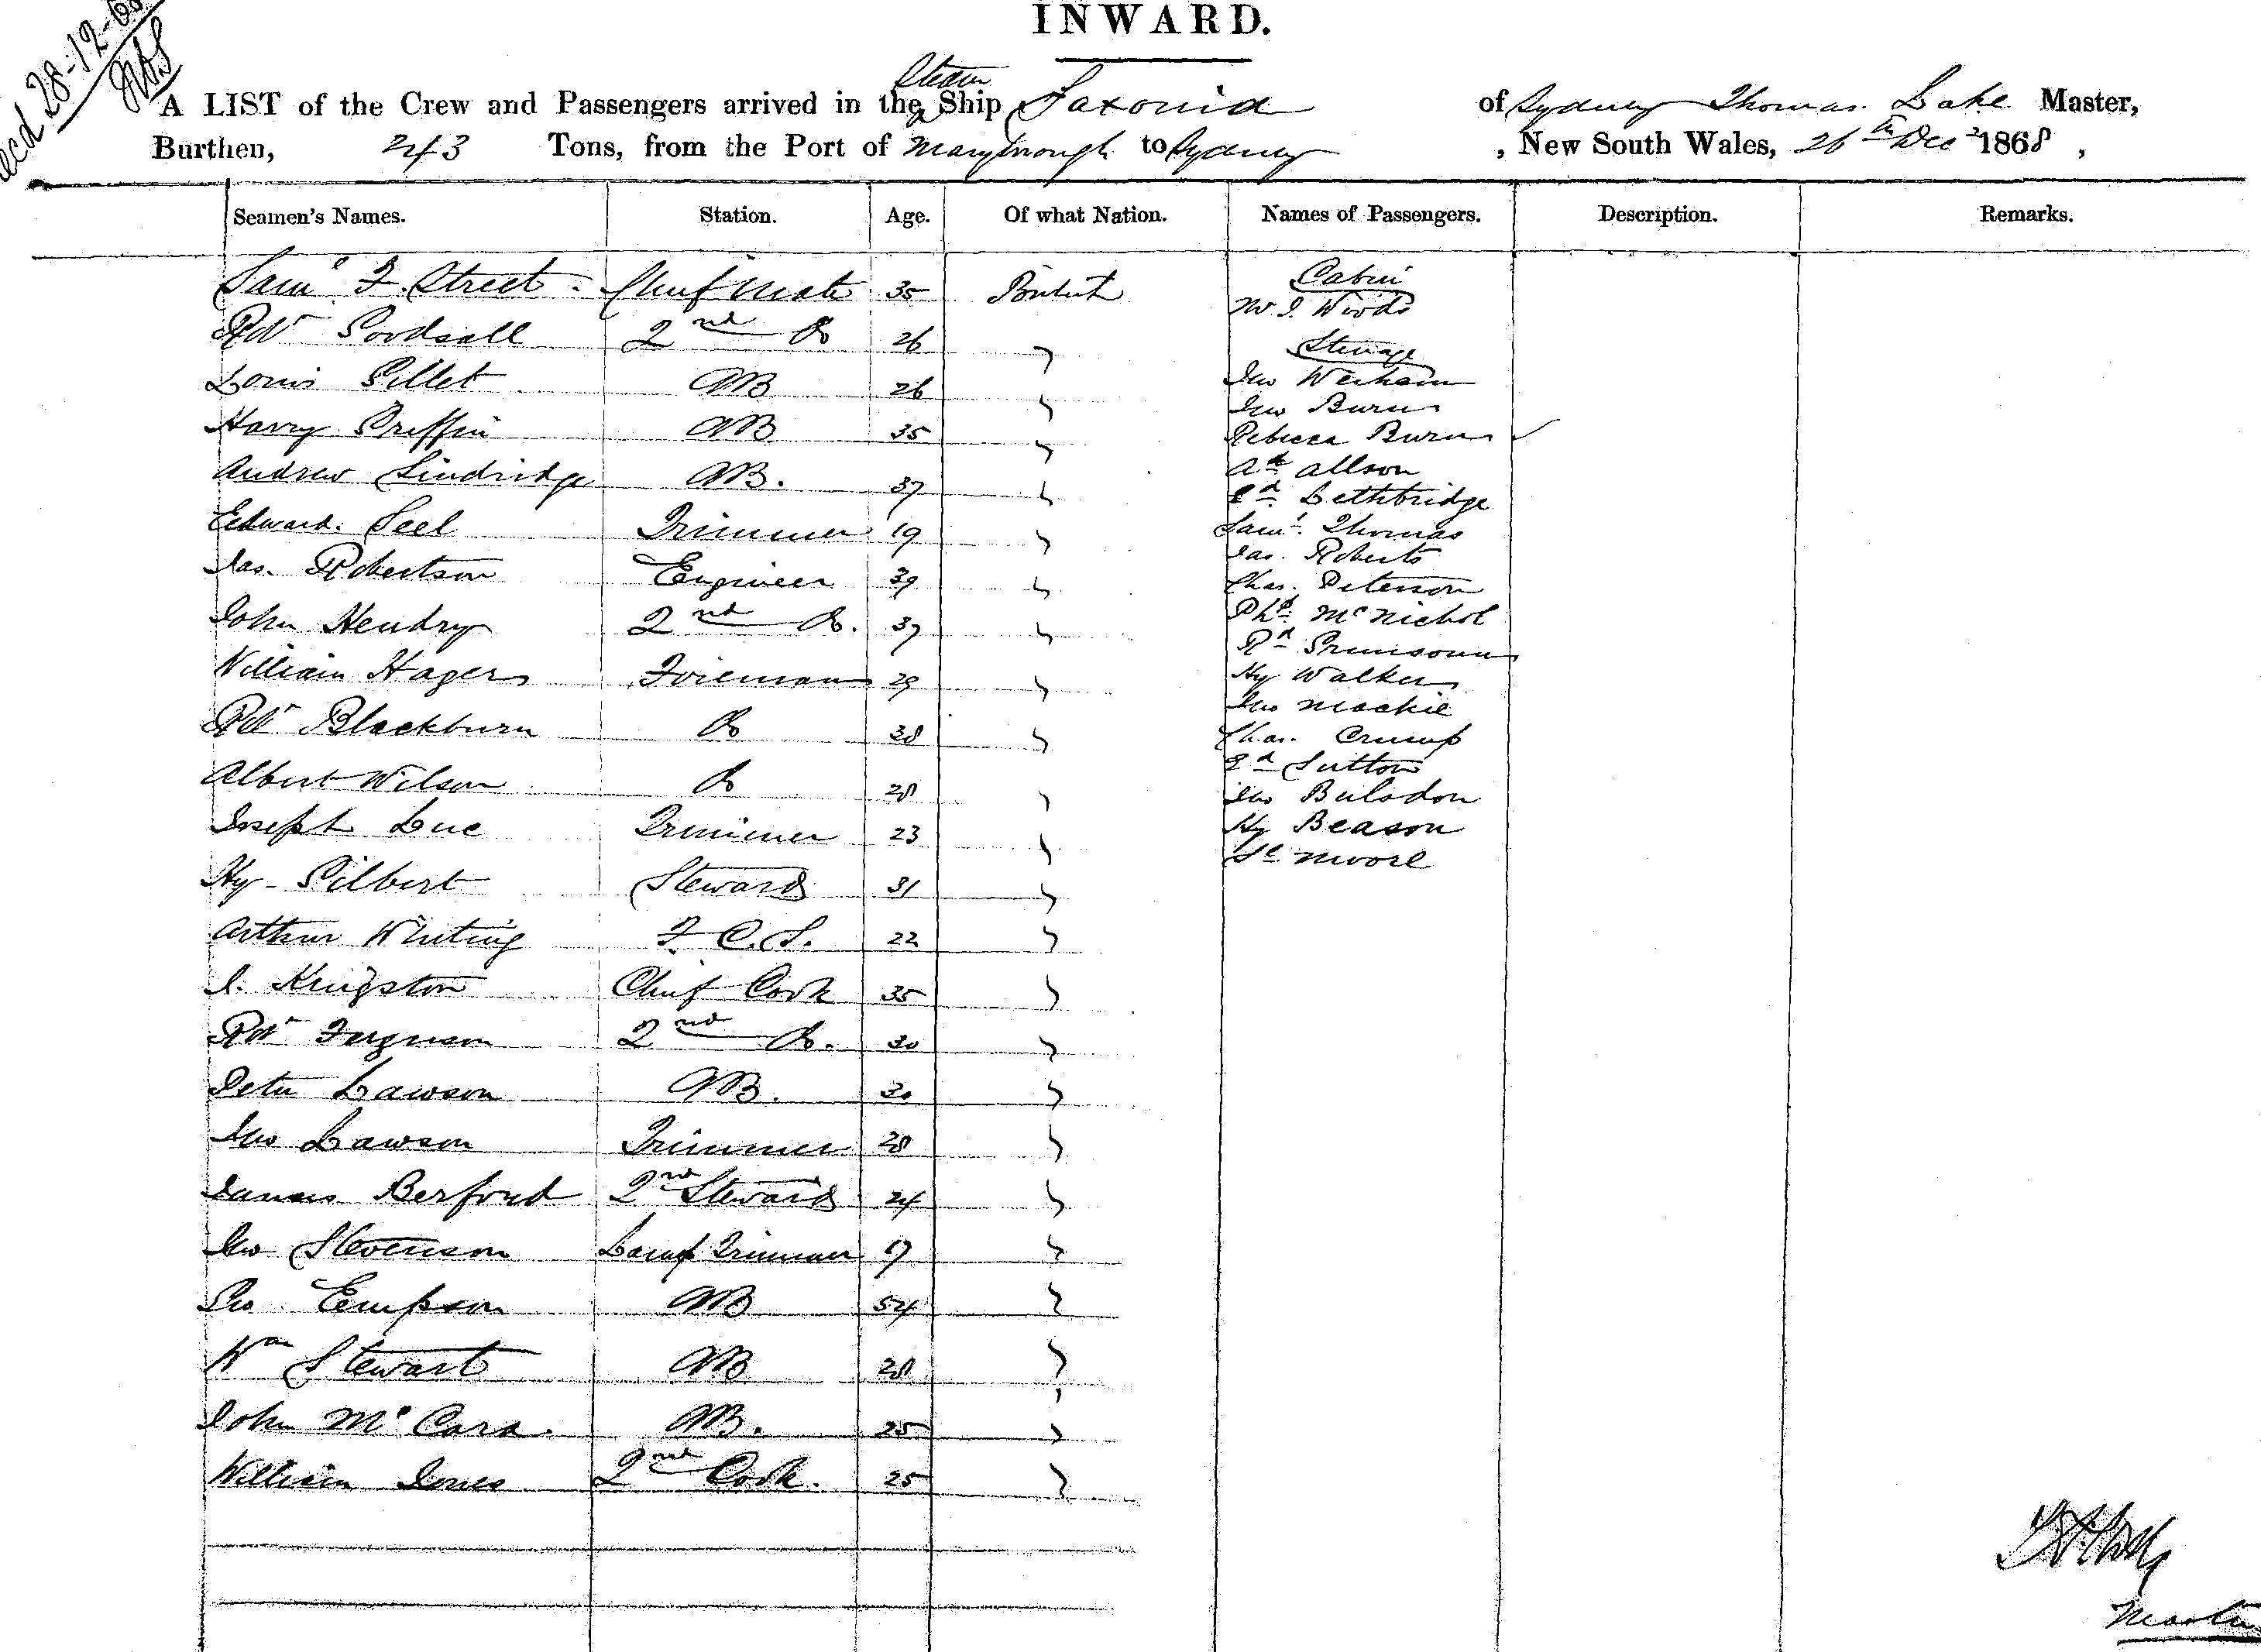 recd 28-12-68
INWARD.
A LIST of the Crew and Passengers arrived in the Steam Ship Saxonia of Sydney Thomas Lake Master,
Burthen, 243 Tons, from the Port of Maryborough to Sydney, New South Wales, 26th Decr 1868,
Seamen's Names. Station. Age. Of what Nation. Names of Passengers. Description. Remarks.
Saml F. Street Chief Mate 35 British
Robt Goodsall 2nd Do 26 "
Louis Gillet AB 26 "
Harry Griffin AB 35 "
Andrew Lindridge AB. 37 "
Edward Peel Trimmer 19 "
Jas. Robertson Engineer 39 "
John Hendry 2nd Do. 37 "
William Hagers Fireman 29 "
Robt Blackburn Do 38 "
Albert Wilson Do 28 "
Joseph Luc Trimmer 23 "
Hy Gilbert Steward 31 "
Arthur Whiting F. C. S. 22 "
J. Kingston Chief Cook 35 "
Robt Ferguson 2nd Do. 30 "
Peter Lawson AB. 30 "
Jno Lawson Trimmer 28 "
James Berford 2nd Steward 24 "
Jno Stevenson Lamp Trimmer 17 "
Geo Empson AB 54 "
Wm Stewart AB 28 "
John McCara. AB. 25 "
William Jones 2nd Cook. 25 "
Cabin
W. J. Woods
Steerage
Jno Werham
Jno Burns
Rebecca Burns
Ad Allson
Ed Lethbridge
Saml Thomas
Jas. Roberts
Chas. Peterson
Php McNichol
Rd
Hy Walker
Jno Mackie
Chas. Crump
Ed Sutton
Jno Bulsdon
Hy Beason
Moore
Master